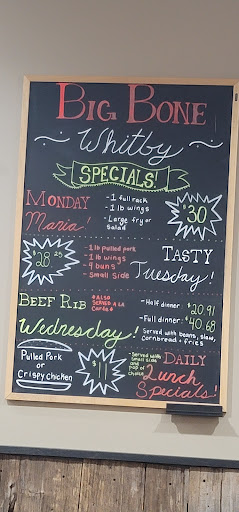 BIG BONE
Whitby
SPECIALS!
MONDAY
Mania!
- 1 full rack
- 1 lb wings
- Large fry or
salad
$30
$28.25
- 1 lb pulled pork
- 1 lb wings
- 4 buns
- Small Side
TASTY
Tuesday!
BEEF RIB
* ALSO
SERVED A LA
CARTE *
Wednesday!
- Half dinner: $20.91
- Full dinner: $40.68
Served with beans, slaw,
cornbread + fries
Pulled Pork
or
Crispy Chicken
$11
- Served with
small side
and pop of
choice
DAILY
Lunch
Specials!